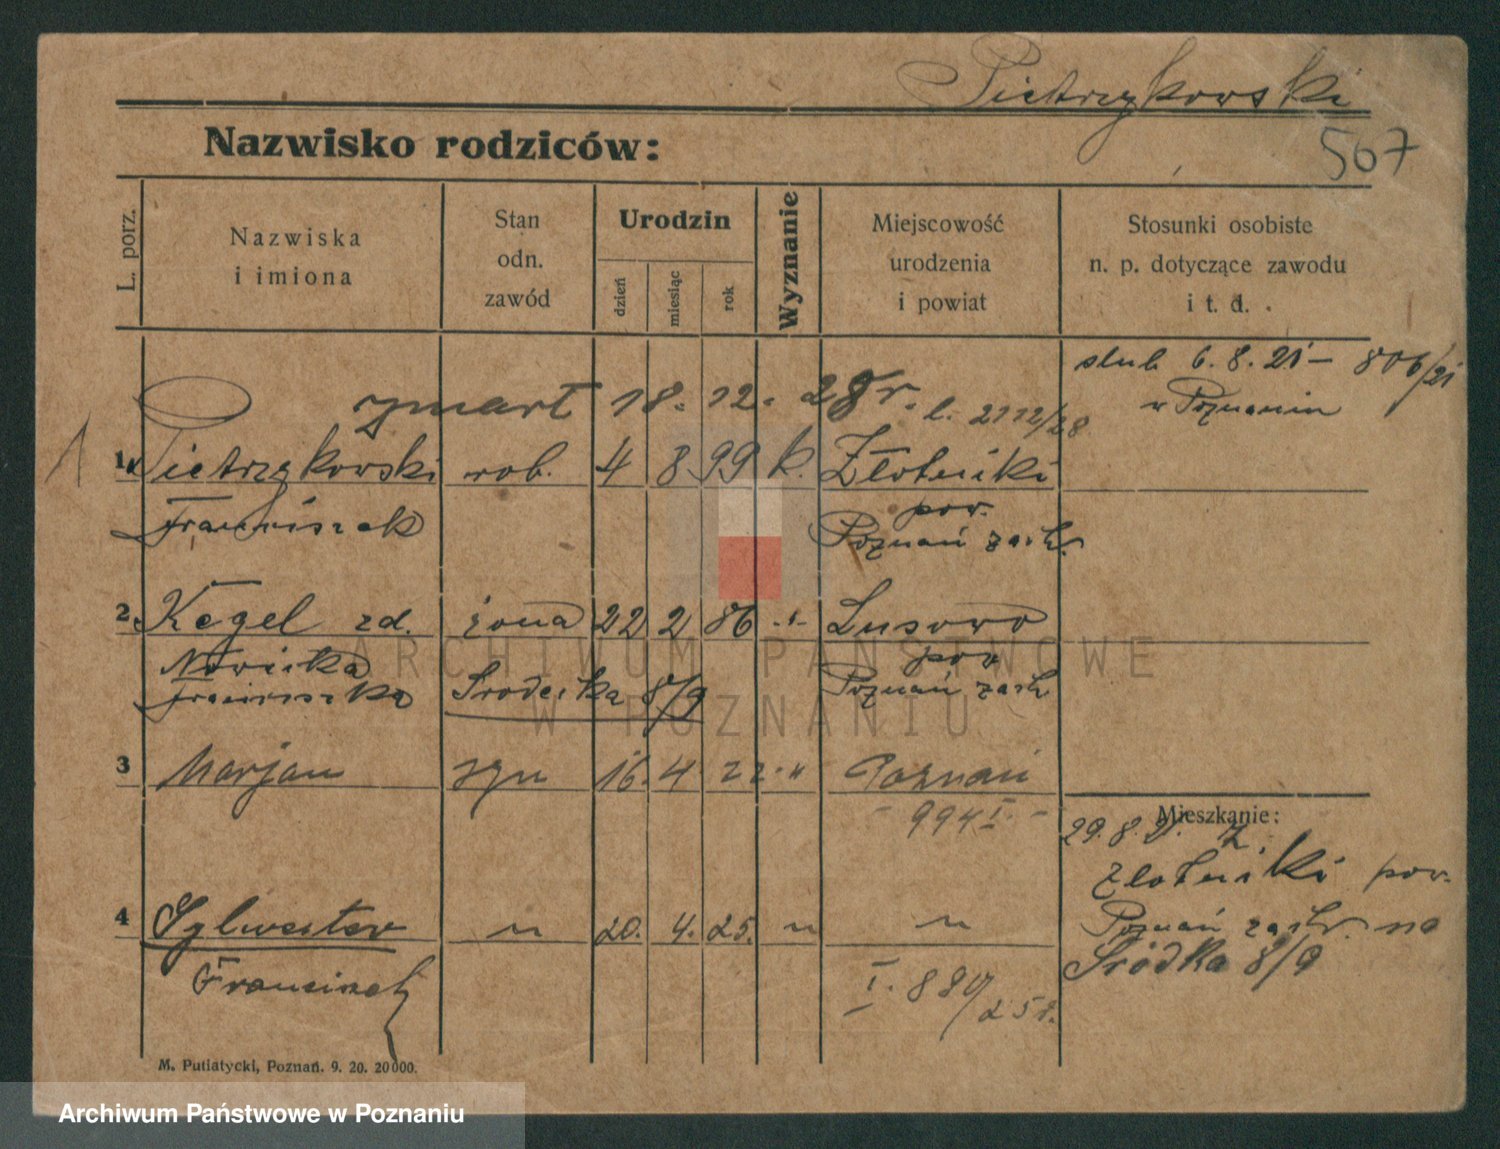 Pietrzykowski
Nazwisko rodziców:
567
L. porz.
Nazwiska
i imiona
Stan
odn.
zawód
Urodzin
dzień
miesiąc
rok
Wyznanie
Miejscowość
urodzenia
i powiat
Stosunki osobiste
n. p. dotyczące zawodu
i t. d.
slub 6. 8. 21 - 806/21
w Poznaniu
zmarł 18. 12. 28 r. l. 2112/28
1
1. Pietrzykowski rob. 4 8 99 k. Złotniki
Franciszek
pow.
Poznań zach.
2 Kegel zd. żona 22 2 86 -"- Lusowo
Nowicka
pow
Franciszka Srodecka 8/9 Poznań zach
3 Marjan syn 16. 4 22 " Poznań
- 994 I. -
Mieszkanie:
29. 8. 21. z.
Złotniki pow.
4 Sylwester " 20. 4. 25. " "
Poznań zach. na
Śródka 8/9
Franciszek
I. 880/25 r.
M. Putiatycki, Poznań. 9. 20. 20000.
ARCHIWUM PAŃSTWOWE
W POZNANIU
Archiwum Państwowe w Poznaniu